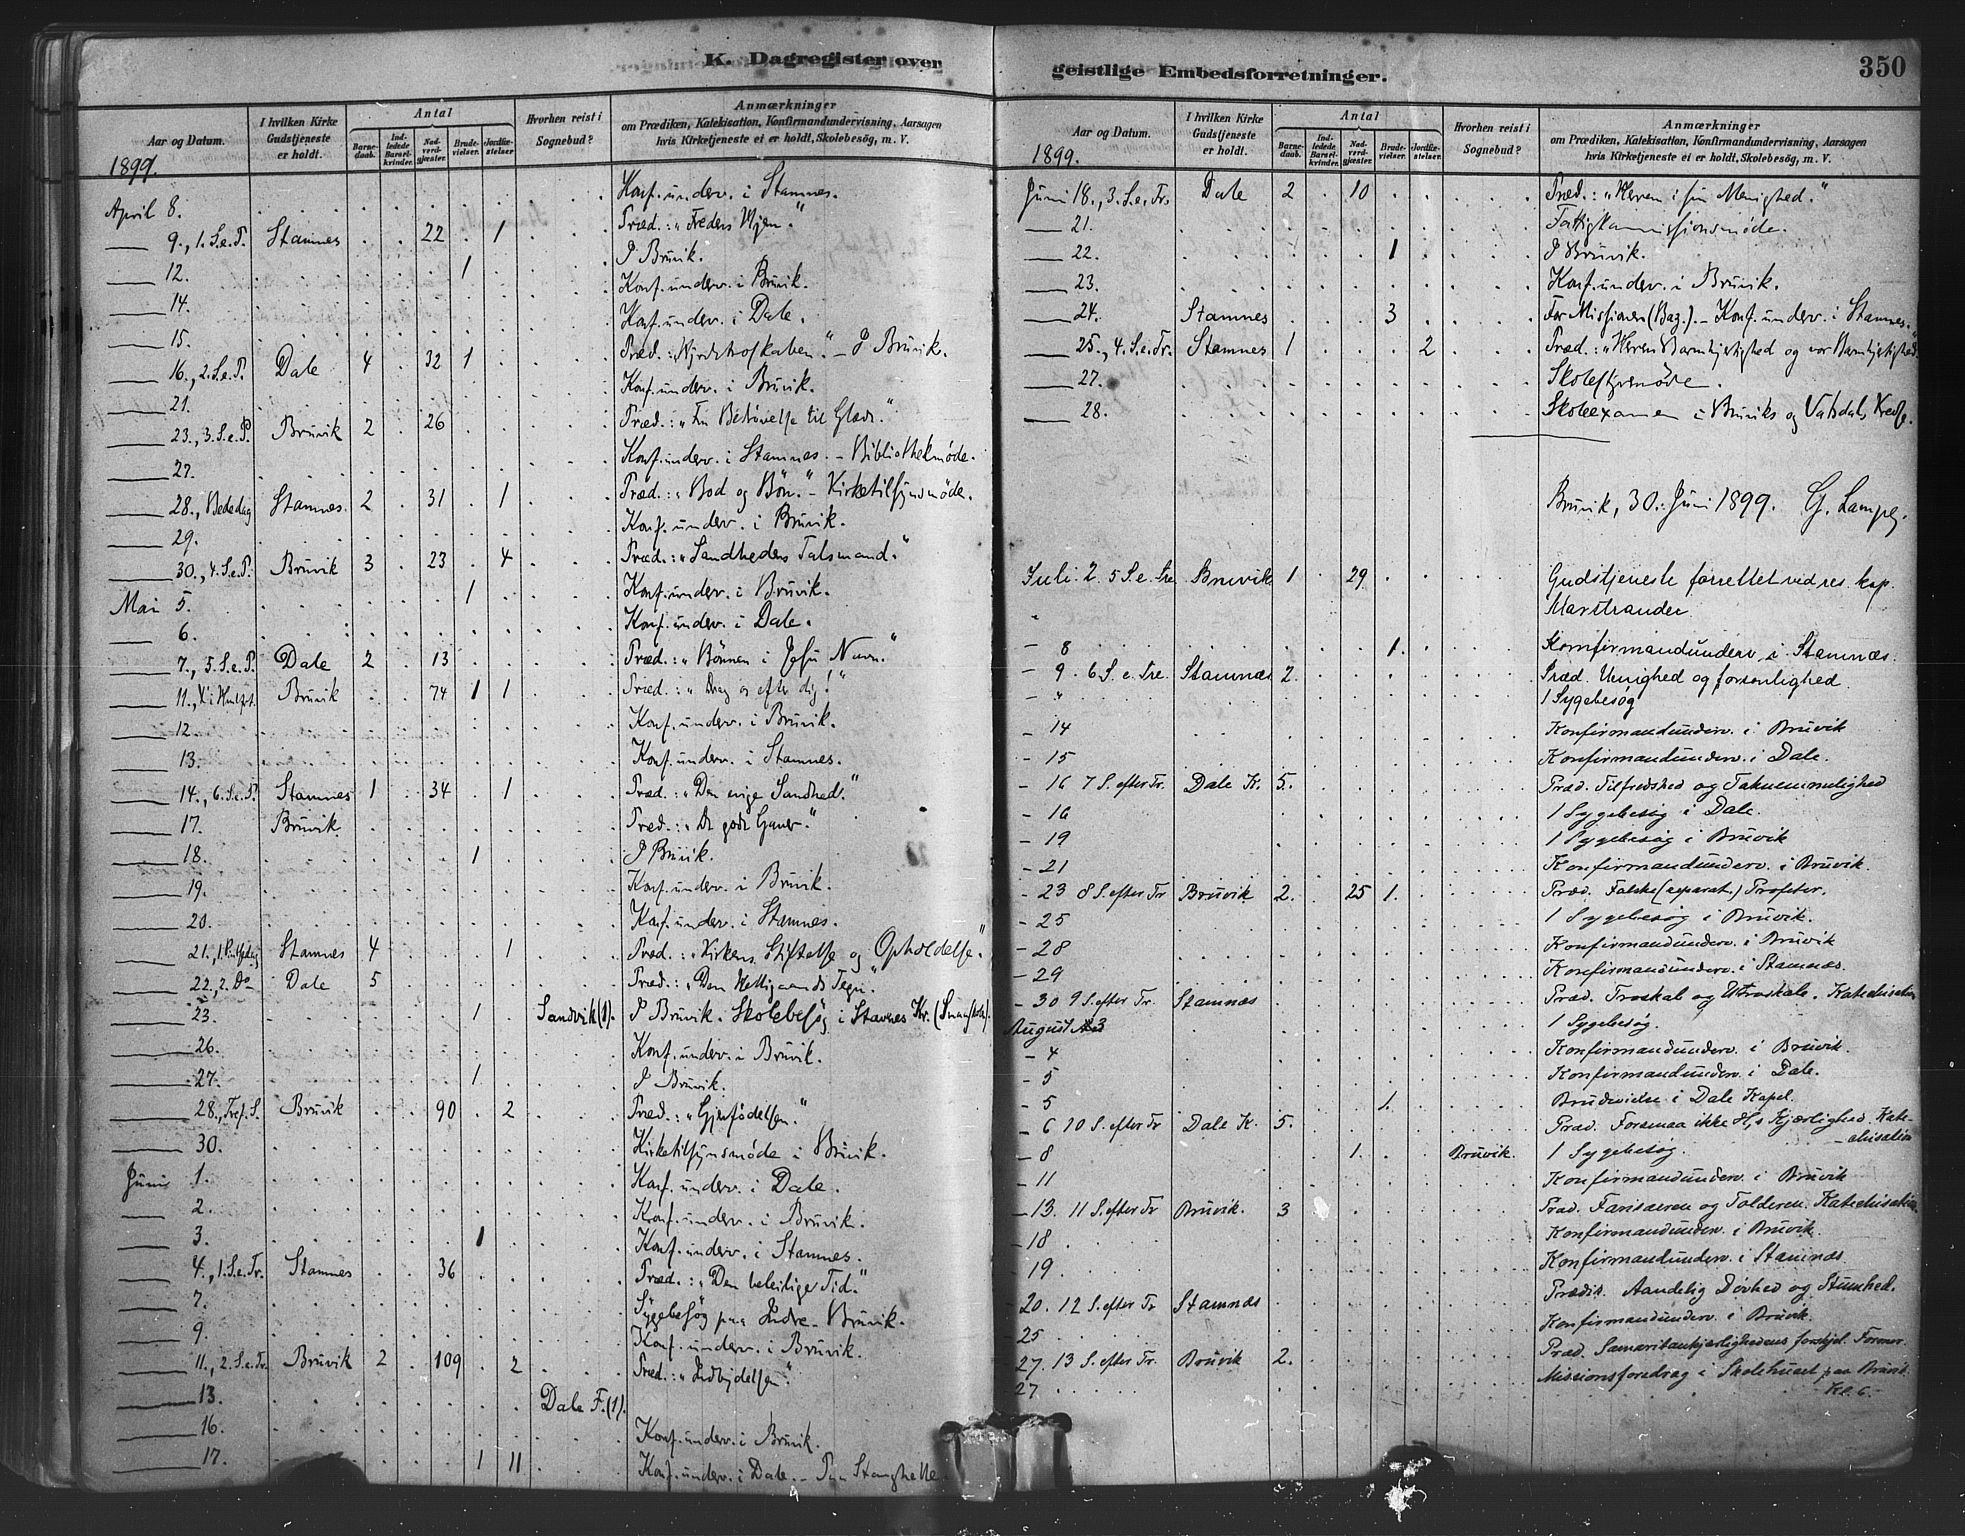 K. Dagregister over
Aar og Datum. | I hvilken Kirke Gudstjeneste er holdt. | Antal | Barnedaab. | Indledede Barselkvinder. | Nadverdgjæster. | Brudevielser. | Jordfæstelser. | Hvorhen reist i Sognebud? | Anmærkninger om Prædiken, Katekisation, Konfirmandundervisning, Aarsagen hvis Kirketjeneste ei er holdt, Skolebesøg, m. V.
1899.
April 8. Konf. underv. i Stamnes.
9., 1. S. e. P. Stamnes 22 1 Præd.: „Fredens
12. 1 I Bruvik.
14. Konf. underv. i Bruvik.
15. Konf. underv. i Dale.
16., 2. S. e. P. Dale 4 32 1 Præd.: „Hyrdetroskaben.“ – I Bruvik.
21. Konf. underv. i Bruvik.
23., 3. S. e. P. Bruvik 2 26 Præd.: „Fra Bedrøvelse til Glæde.“
27. Konf. underv. i Stamnes. – Bibliothekmøde.
28., Bededag Stamnes 2 31 1 Præd.: „Bod og Bøn.“ – Kirketilsynsmøde.
29. Konf. underv. i Bruvik.
30., 4. S. e. P. Bruvik 3 23 4 Præd.: „Sandhedens Talsmand.“
Mai 5. 1 Konf. underv. i Bruvik.
6. Konf. underv. i Dale.
7., 5. S. e. P. Dale 2 13 Præd.: „Bønnen i Jesu Navn.“
11., Kr. Himlfst. Bruvik 74 1 1 Præd.: „Drag os efter dig!“
12. Konf. underv. i Bruvik.
13. Konf. underv. i Stamnes.
14., 6. S. e. P. Stamnes 1 34 1 Præd.: „Den evige Sandhed.“
17. Bruvik Præd.: „De gode Gaver.“
18. 1 I Bruvik.
19. Konf. underv. i Bruvik.
20. Konf. underv. i Stamnes.
21., 1. Pintsedag Stamnes 4 1 Præd.: „Kirkens Stiftelse og Opholdelse.“
22., 2. Do Dale 5 Præd.: „Den Helligaands Tegn.“
23. 1 Sandvik (1). I Bruvik. Skolebesøg i Stavnes Kr. (Smaaskolen).
26. Konf. underv. i Bruvik.
27. 1 I Bruvik.
28., Tref. S. Bruvik 90 2 Præd.: „Gjenfødelsen.“
30. Kirketilsynsmøde i Bruvik.
Juni 1. Konf. underv. i Dale.
2. Konf. underv. i Bruvik.
3. 1 Konf. underv. i Stamnes.
4., 1. S. e. Tr. Stamnes 36 Præd.: „Den beleilige Tid.“
7. Sygebesøg paa Indre-Bruvik.
9. Konf. underv. i Bruvik.
11., 2. S. e. Tr. Bruvik 2 109 2 Præd.: „Indbydelsen.“
13. Dale F. (1).
16. Konf. underv. i Bruvik.
17. 1 11 Konf. underv. i Dale. –
geistlige Embedsforretninger.
350
Aar og Datum. | I hvilken Kirke Gudstjeneste er holdt. | Antal | Barnedaab. | Indledede Barselkvinder. | Nadverdgjæster. | Brudevielser. | Jordfæstelser. | Hvorhen reist i Sognebud? | Anmærkninger om Prædiken, Katekisation, Konfirmandundervisning, Aarsagen hvis Kirketjeneste ei er holdt, Skolebesøg, m. V.
1899.
Juni 18., 3. S. e. Tr. Dale 2 10 Præd.: „Herren i sin Menighed.“
21. Fattigkommissionsmøde.
22. 1 I Bruvik.
23. Konf. underv. i Bruvik.
24. Stamnes 3 For Missionen (Baz.). – Konf. underv. i Stamnes.
25., 4. S. e. Tr. Stamnes 1 2 Præd.: „Herrens Barmhjertighed og vor Barmhjertighed.
27. Skolestyremøde.
28. Skoleexamen i Bruviks og Vatsdals Kredse.
Bruvik, 30. Juni 1899. G. Lampe.
Juli 2. 5 S. e. Tre Bruvik 1 29 Gudstjeneste forrettet ved res. kap.
Marstrander
- 8 1. Komfirmandunderv i Stamnæs.
- 9 6 S. e. Tre. Stamnæs 2. Præd. Uenighed og forsonlighed.
- " 1 Sygebesøg
- 14 Konfirmandunderv. i Bruvik
- 15 Konfirmandunderv. i Dale.
- 16 7 S. efter Tr. Dale K. 5. Præd. Tilfredshed og Taknemmelighed
- 16 1 Sygebesøg i Dale.
- 19 1 Sygebesøg i Bruvik
- 21 Konfirmandunderv. i Bruvik.
- 23 8 S. efter Tr Bruvik 2. 25 1. Præd. Falske (separat.) Profeter.
- 25 1 Sygebesøg i Bruvik.
- 28 Konfirmandunderv. i Bruvik
- 29 Konfirmandunderv. i Stamnæs.
- 30 9 S. efter Tr. Stamnæs Præd. Troskab og Utroskab. Katechisation
August 3 1 Sygebesøg.
- 4 Konfirmandunderv. i Bruvik.
- 5 Konfirmandunderv. i Dale.
- 5 1. Brudevielse i Dale Kapel.
- 6 10 S. efter Tr Dale K. 5. Præd. Forsmaa ikke H,s Kjærlighed. Kate-
chisation
- 8 1. Bruvik. 1 Sygebesøg.
- 11 Konfirmandunderv. i Bruvik
- 13. 11 S. efter Tr Bruvik. 3 Præd. Farisæeren og Tolderen. Katechisation.
- 18 Konfirmandunderv. i Bruvik
- 19. Konfirmandunderv. i Stamnæs
- 20. 12 S. efter Tr Stamnæs. Prædik. Aandelig Døvhed og Stumhed.
- 25 Konfirmandunderv. i Bruvik.
- 27. 13 S. efter Tr. Bruvik 2. Præd. Samaritankjærlighedens forskjel. Former.
27 Missionsforedrag i Skolehuset paa Bruvik
Kl. 6.